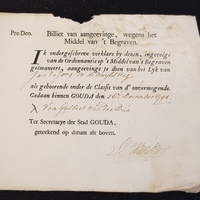 Pro Deo.
Billiet van aangeevinge, wegens het
Middel van 't Begraven.
Ik ondergeschreve verklare by desen, ingevolge
van de Ordonnantie op 't Middel van 't Begraven
geëmaneert, aangeevinge te doen van het Lyk van
als gehoorende onder de Classis van d' onvermogende.
Gedaan binnen GOUDA den 16 December 1791
Ter Secretarye der Stad GOUDA,
geteekend op datum als boven.